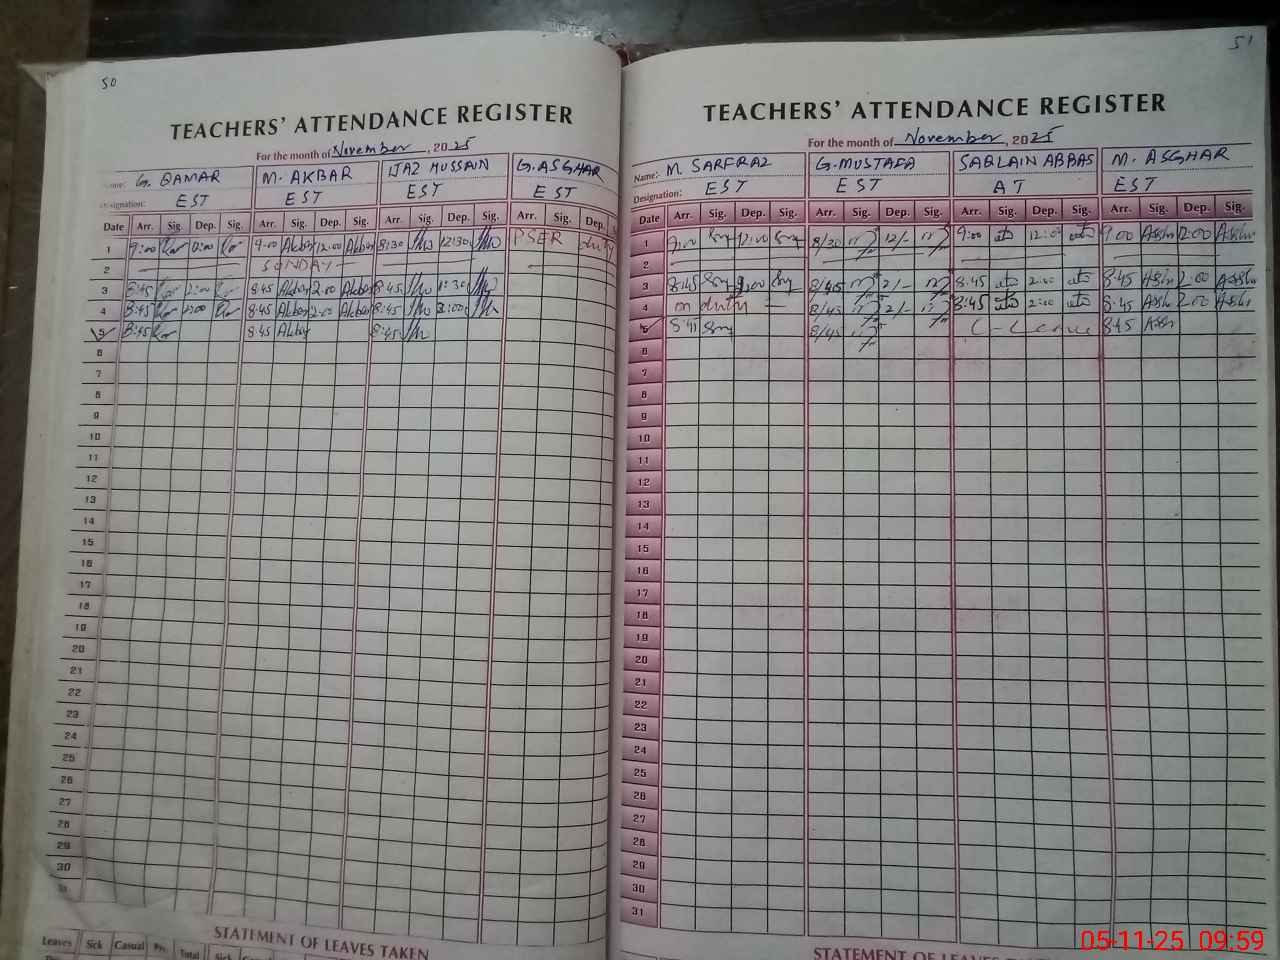 50
TEACHERS' ATTENDANCE REGISTER
For the month of November, 2025
G. QAMAR M. AKBAR IJAZ HUSSAIN G. ASGHAR
Designation: EST EST EST EST
Date Arr. Sig. Dep. Sig. Arr. Sig. Dep. Sig. Arr. Sig. Dep. Sig. Arr. Sig. Dep.
1 9:00 9:00 Akbar 12:00 Akbar 8:30 12:30 PSER duty
2 SUNDAY
3 8:45 2:00 8:45 Akbar 2:00 Akbar 8:45
4 8:45 2:00 8:45 Akbar 2:00 Akbar 8:45 2:00
5 8:45 8:45 Akbar 8:45
6
7
8
9
10
11
12
13
14
15
16
17
18
19
20
21
22
23
24
25
26
27
28
29
30
31
STATEMENT OF LEAVES TAKEN
Leaves Sick Casual Prv. Total Sick
51
TEACHERS' ATTENDANCE REGISTER
For the month of November, 2025
Name: M. SARFRAZ G. MUSTAFA SAQLAIN ABBAS M. ASGHAR
Designation: EST EST AT EST
Date Arr. Sig. Dep. Sig. Arr. Sig. Dep. Sig. Arr. Sig. Dep. Sig. Arr. Sig. Dep. Sig.
1 9:00 12:00 8/30 12/- 9:00 12:00 9:00 12:00
2
3 8:45 2:00 8/45 2/- 8:45 2:00 8:45 2:00
4 on duty 8/45 2/- 8:45 2:00 8:45 2:00
5 8:45 8/45 C-Leave 8:45
6
7
8
9
10
11
12
13
14
15
16
17
18
19
20
21
22
23
24
25
26
27
28
29
30
31
STATEMENT OF LEAVES
05-11-25 09:59